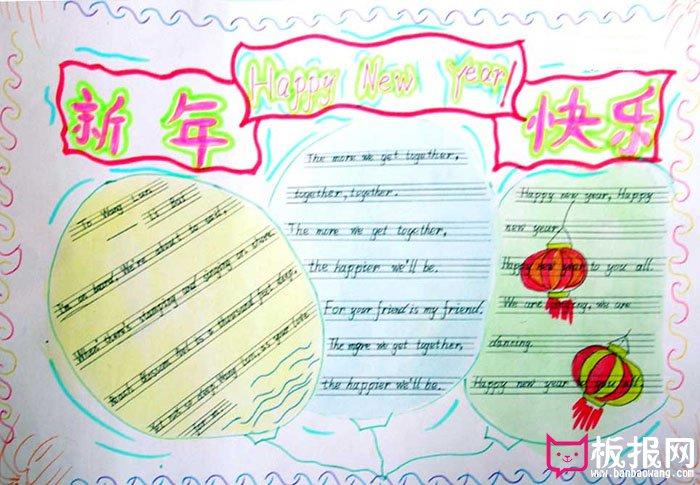 新年
Happy New Year
快乐
To Wang Lun
—— Li Bai
I'm on board. We're about to sail,
When there's stamping and singing on shore.
Peach Blossom Pool is a thousand feet deep,
Yet not so deep, Wang Lun, as your love
for me.
The more we get together,
together, together.
The more we get together,
the happier we'll be.
For your friend is my friend.
The more we get together,
the happier we'll be.
Happy new year, Happy
new year.
Happy new year to you all.
We are singing, we are
dancing.
Happy new year to you all.
板报网
www.banbaowang.com